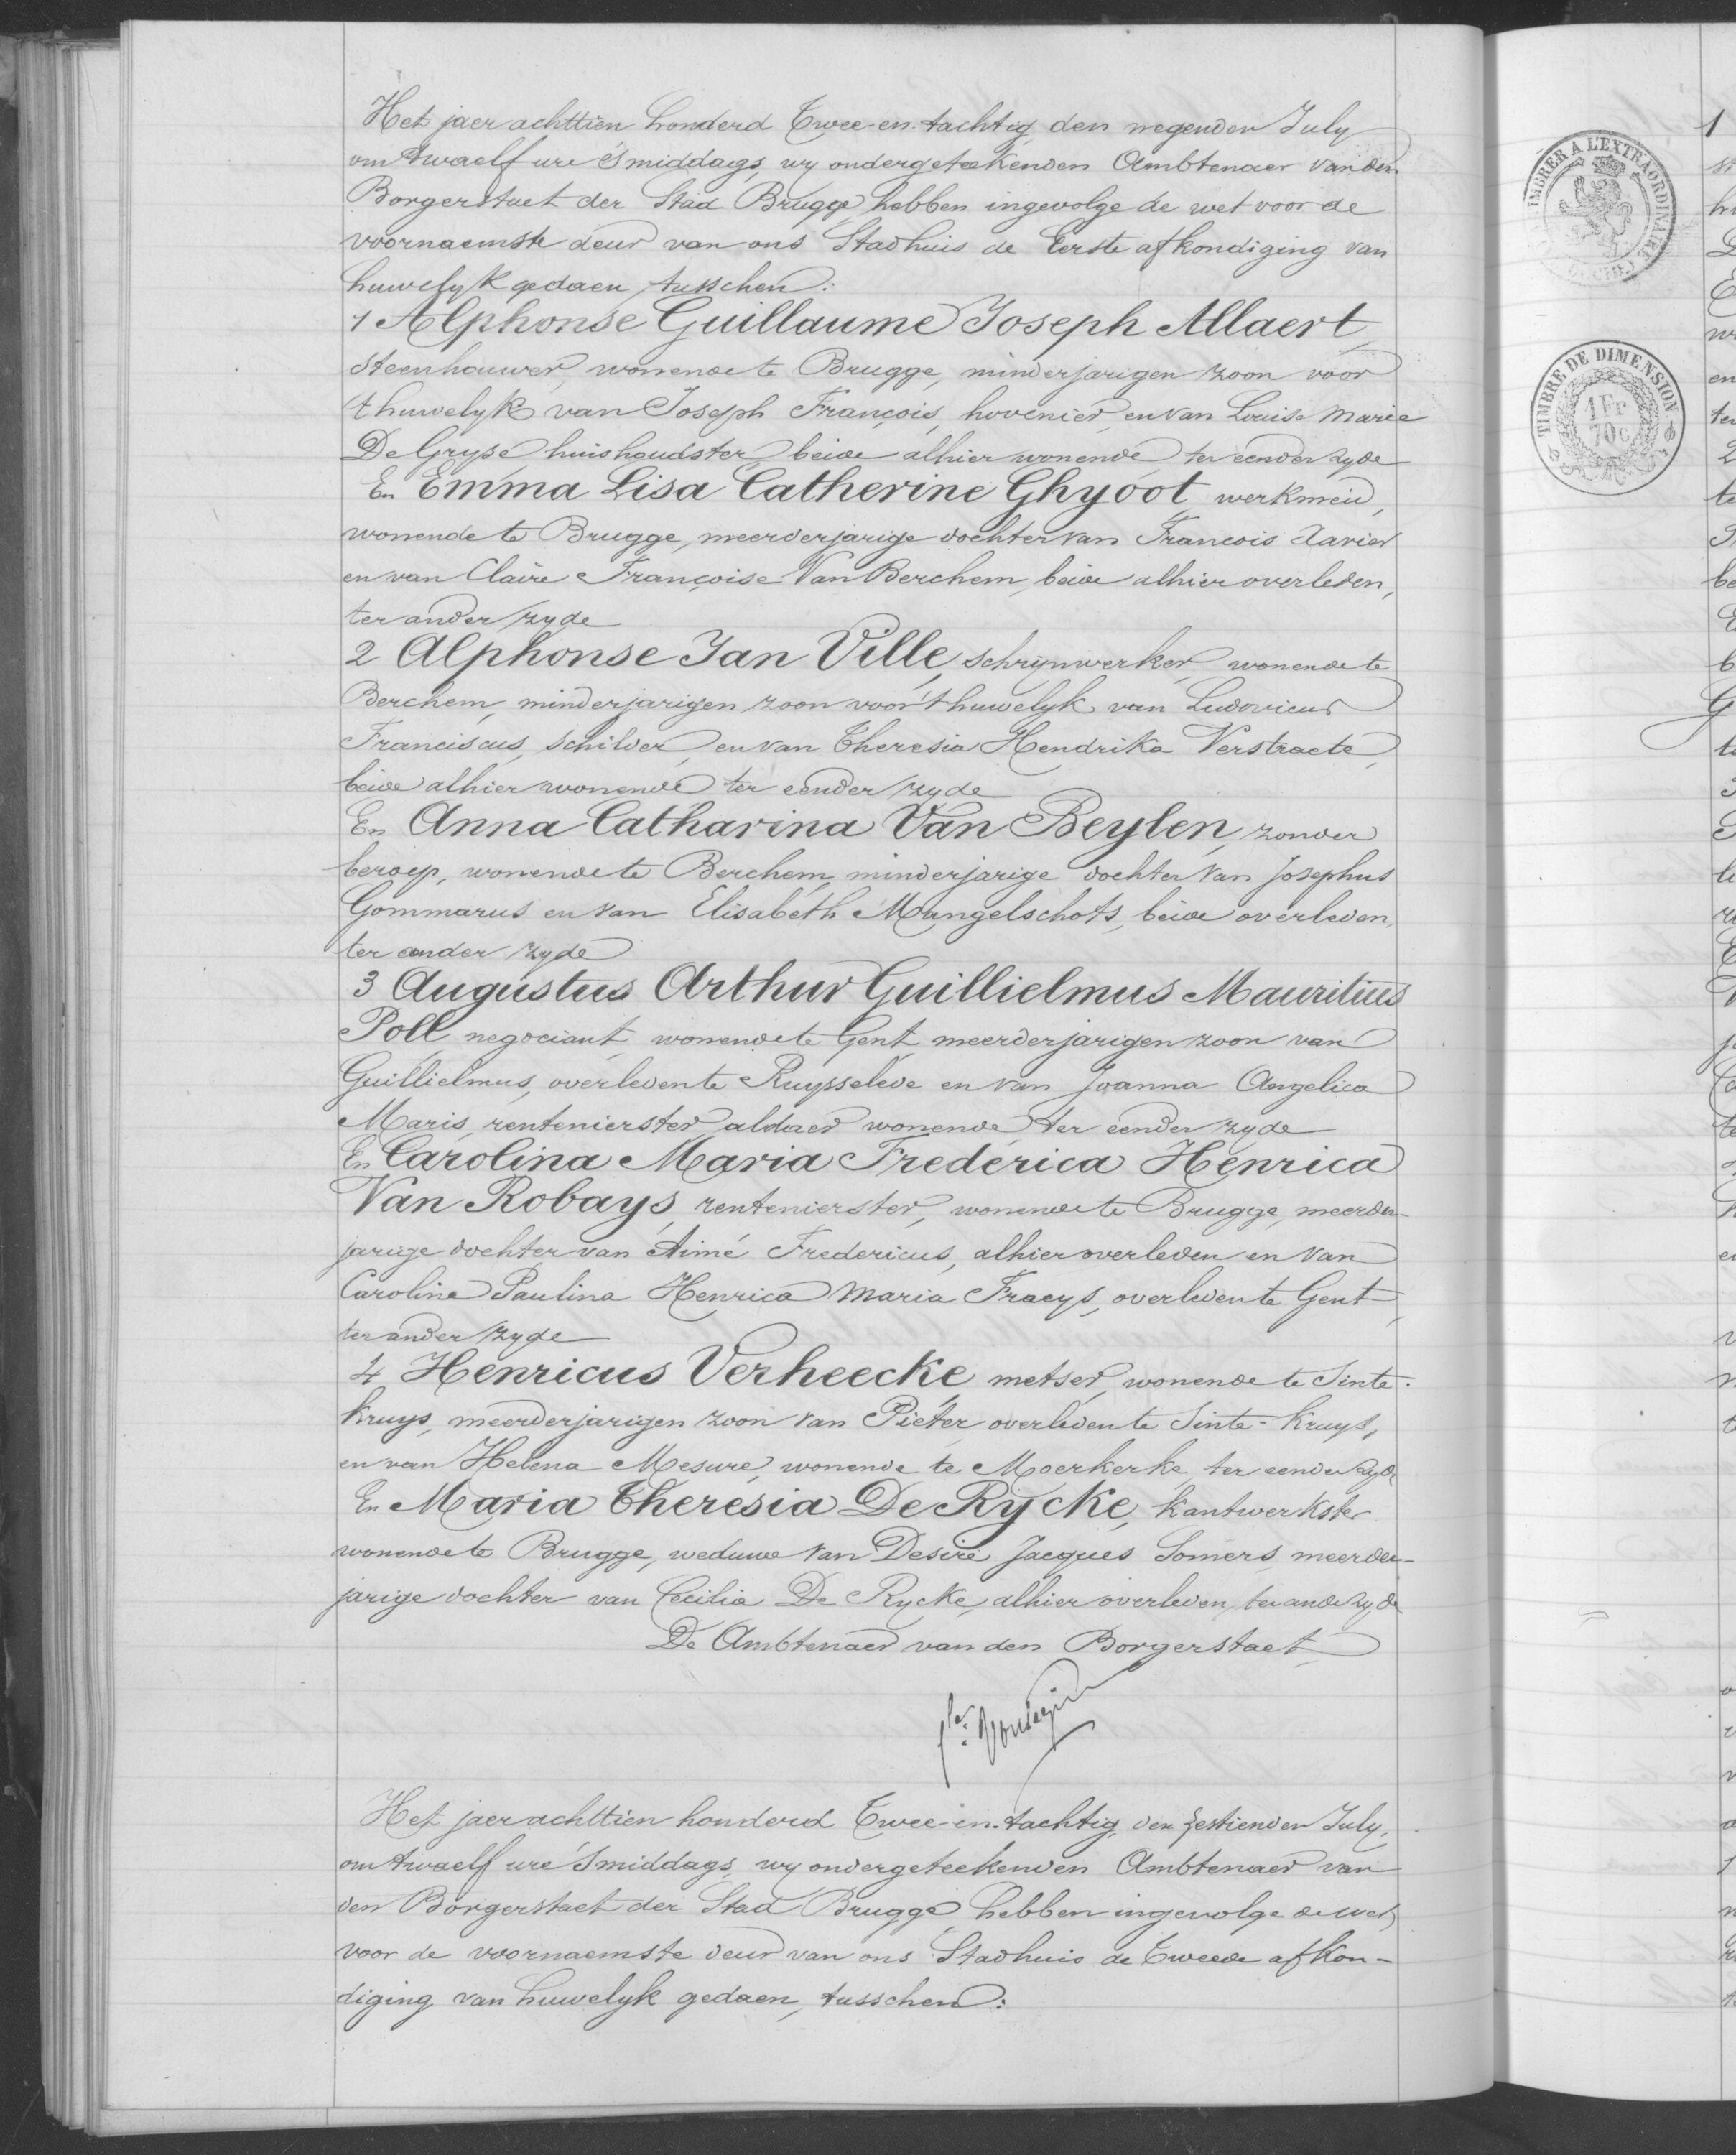 Het jaer achttien honderd Twee-en-tachtig den negenden July
om twaelf ure 's middags, wy ondergeteekenden Ambtenaer van den
Borgerstaet der Stad Brugge hebben ingevolge de wet voor de
voornaemste deur van ons Stadhuis de Eerste afkondiging van
huwelyk gedaen, tusschen:
1 Alphonse Guillaume Joseph Allaert,
steenhouwer, wonende te Brugge, minderjarigen zoon voor
't huwelyk van Joseph François, hovenier, en van Louise Marie
De Gryse, huishoudster, beide alhier wonende ter eender zyde
En Emma Lisa Catherine Ghyoot, werkmeid,
wonende te Brugge, meerderjarige dochter van Francois Xavier
en van Claire Françoise Van Berchem, beide alhier overleden,
ter ander zyde
2 Alphonse Jan Ville, schrijnwerker, wonende te
Berchem, minderjarigen zoon voor 't huwelyk van Ludovicus
Franciscus, schilder, en van Theresia Hendrika Verstraete,
beide alhier wonende ter eender zyde
En Anna Catharina Van Beylen, zonder
beroep, wonende te Berchem, minderjarige dochter van Josephus
Gommarus en van Elisabeth Mangelschots, beide overleden,
ter ander zyde
3 Augustus Arthur Guillielmus Mauritius
Poll negociant, wonende te Gent, meerderjarigen zoon van
Guillielmus, overleden te Ruysselede en van Joanna Angelica
Maris, rentenierster, aldaer wonende, ter eender zyde
En Carolina Maria Frederica Henrica
Van Robays, rentenierster, wonende te Brugge, meerder-
jarige dochter van Aimé Fredericus, alhier overleden en van
Carolina Paulina Henrica Maria Fraeys, overleden te Gent,
ter ander zyde
4 Henricus Verheecke metser, wonende te Sinte-
Kruys, meerderjarigen zoon van Pieter overleden te Sinte-Kruys,
en van Helena Mesure, wonende te Moerkerke, ter eender zyde
En Maria Theresia De Rycke, kantwerkster
wonende te Brugge, weduwe van Desiré Jacques Somers, meerder-
jarige dochter van Cecilia De Rycke, alhier overleden, ter ander zyde
De Ambtenaer van den Borgerstaet,
Het jaer achttien honderd Twee-en-tachtig, den zestienden July,
om twaelf ure 's middags, wy ondergeteekenden Ambtenaer van
den Borgerstaet der Stad Brugge, hebben ingevolge de wet,
voor de voornaemste deur van ons Stadhuis de Tweede afkon-
diging van huwelyk gedaen, tusschen:
TIMBRER A L'EXTRAORDINAIRE
TIMBRE DE DIMENSION
1 Fr
70 c